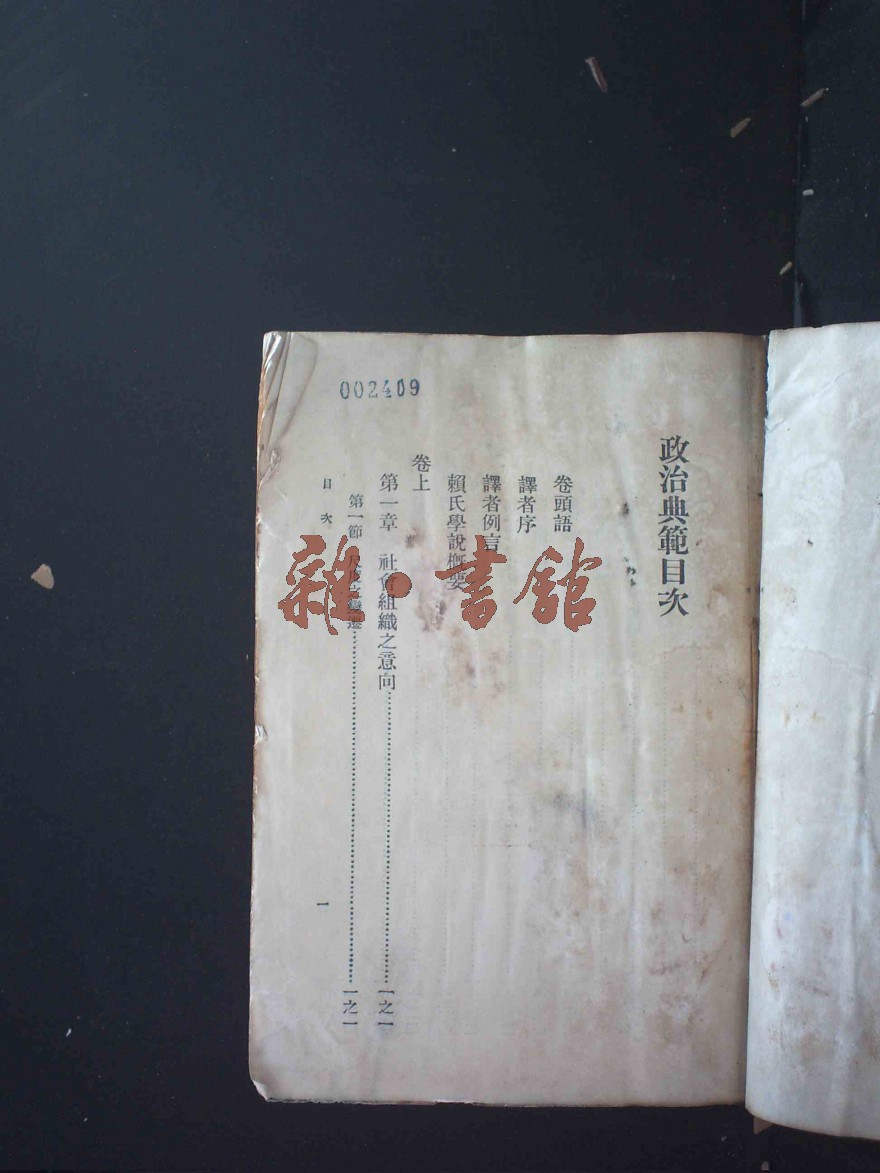 政治典範目次
卷頭語
譯者序
譯者例言
賴氏學說概要
卷上
第一章 社會組織之意向 一之一
第一節 之 遷 一之一
目次
一
002409
雜·書館